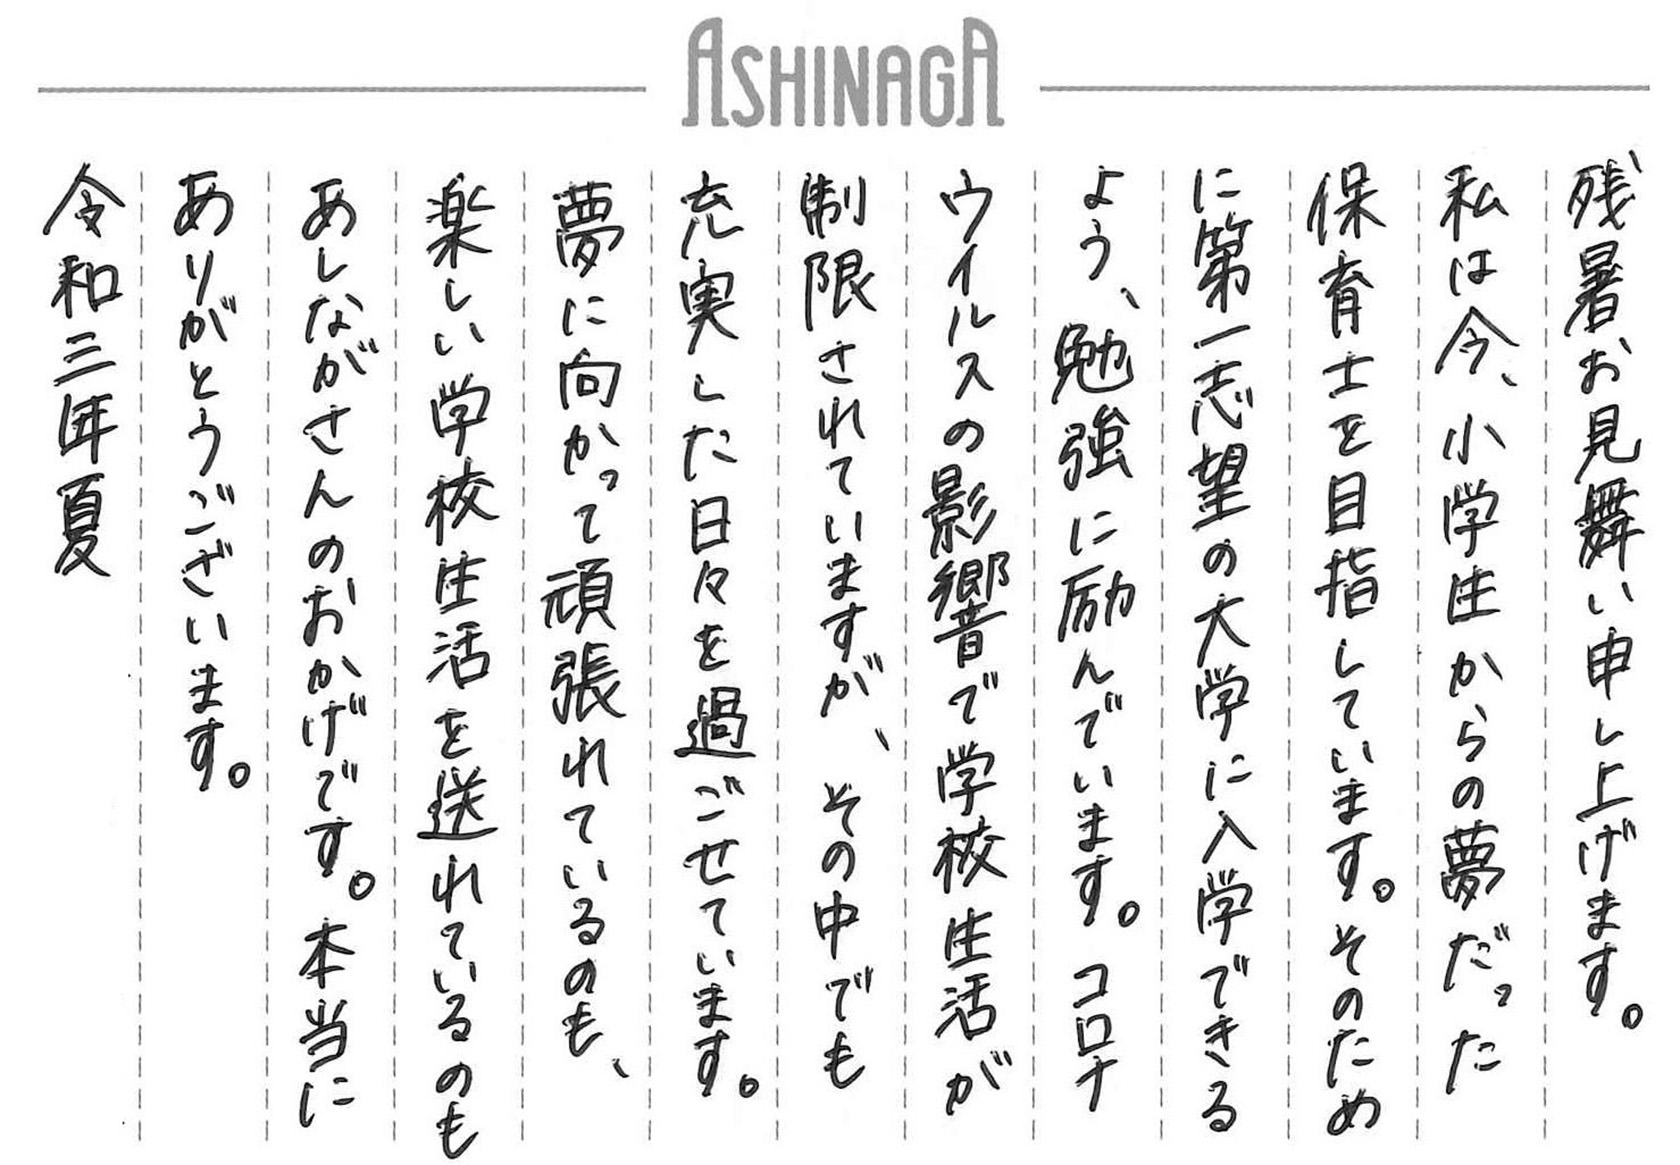 ASHINAGA
残暑お見舞い申し上げます。
私は今、小学生からの夢だった
保育士を目指しています。そのため
に第一志望の大学に入学できる
よう、勉強に励んでいます。コロナ
ウイルスの影響で学校生活が
制限されていますが、その中でも
充実した日々を過ごせています。
夢に向かって頑張れているのも、
楽しい学校生活を送れているのも
あしながさんのおかげです。本当に
ありがとうございます。
令和三年夏